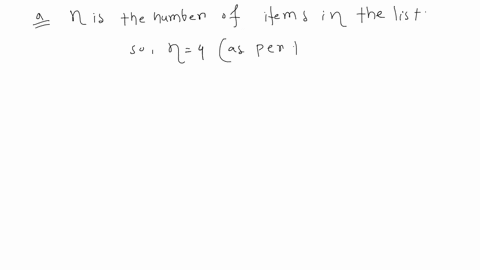 a n is the number of items in the list.
so, n = 4 (as per